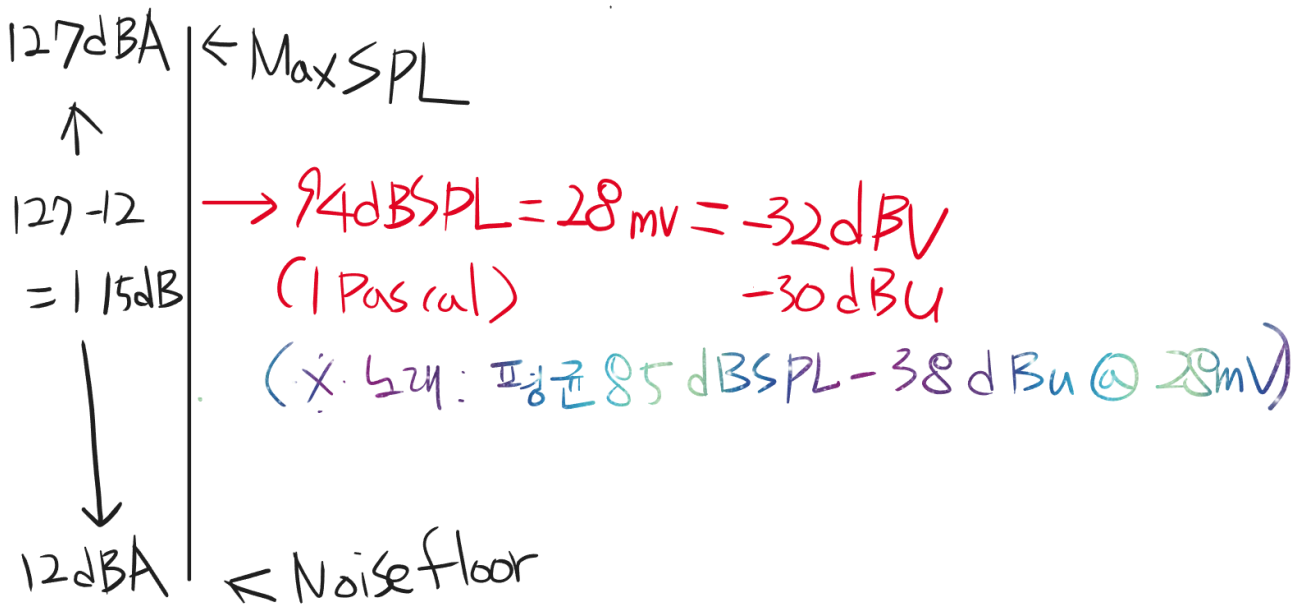 127dBA ← MaxSPL
↑
127-12 → 94dBSPL = 28mV = -32dBV
= 115dB (1 Pascal) -30dBu
(※ 노래: 평균 85dBSPL -38dBu @ 28mV)
↓
12dBA ← Noise floor